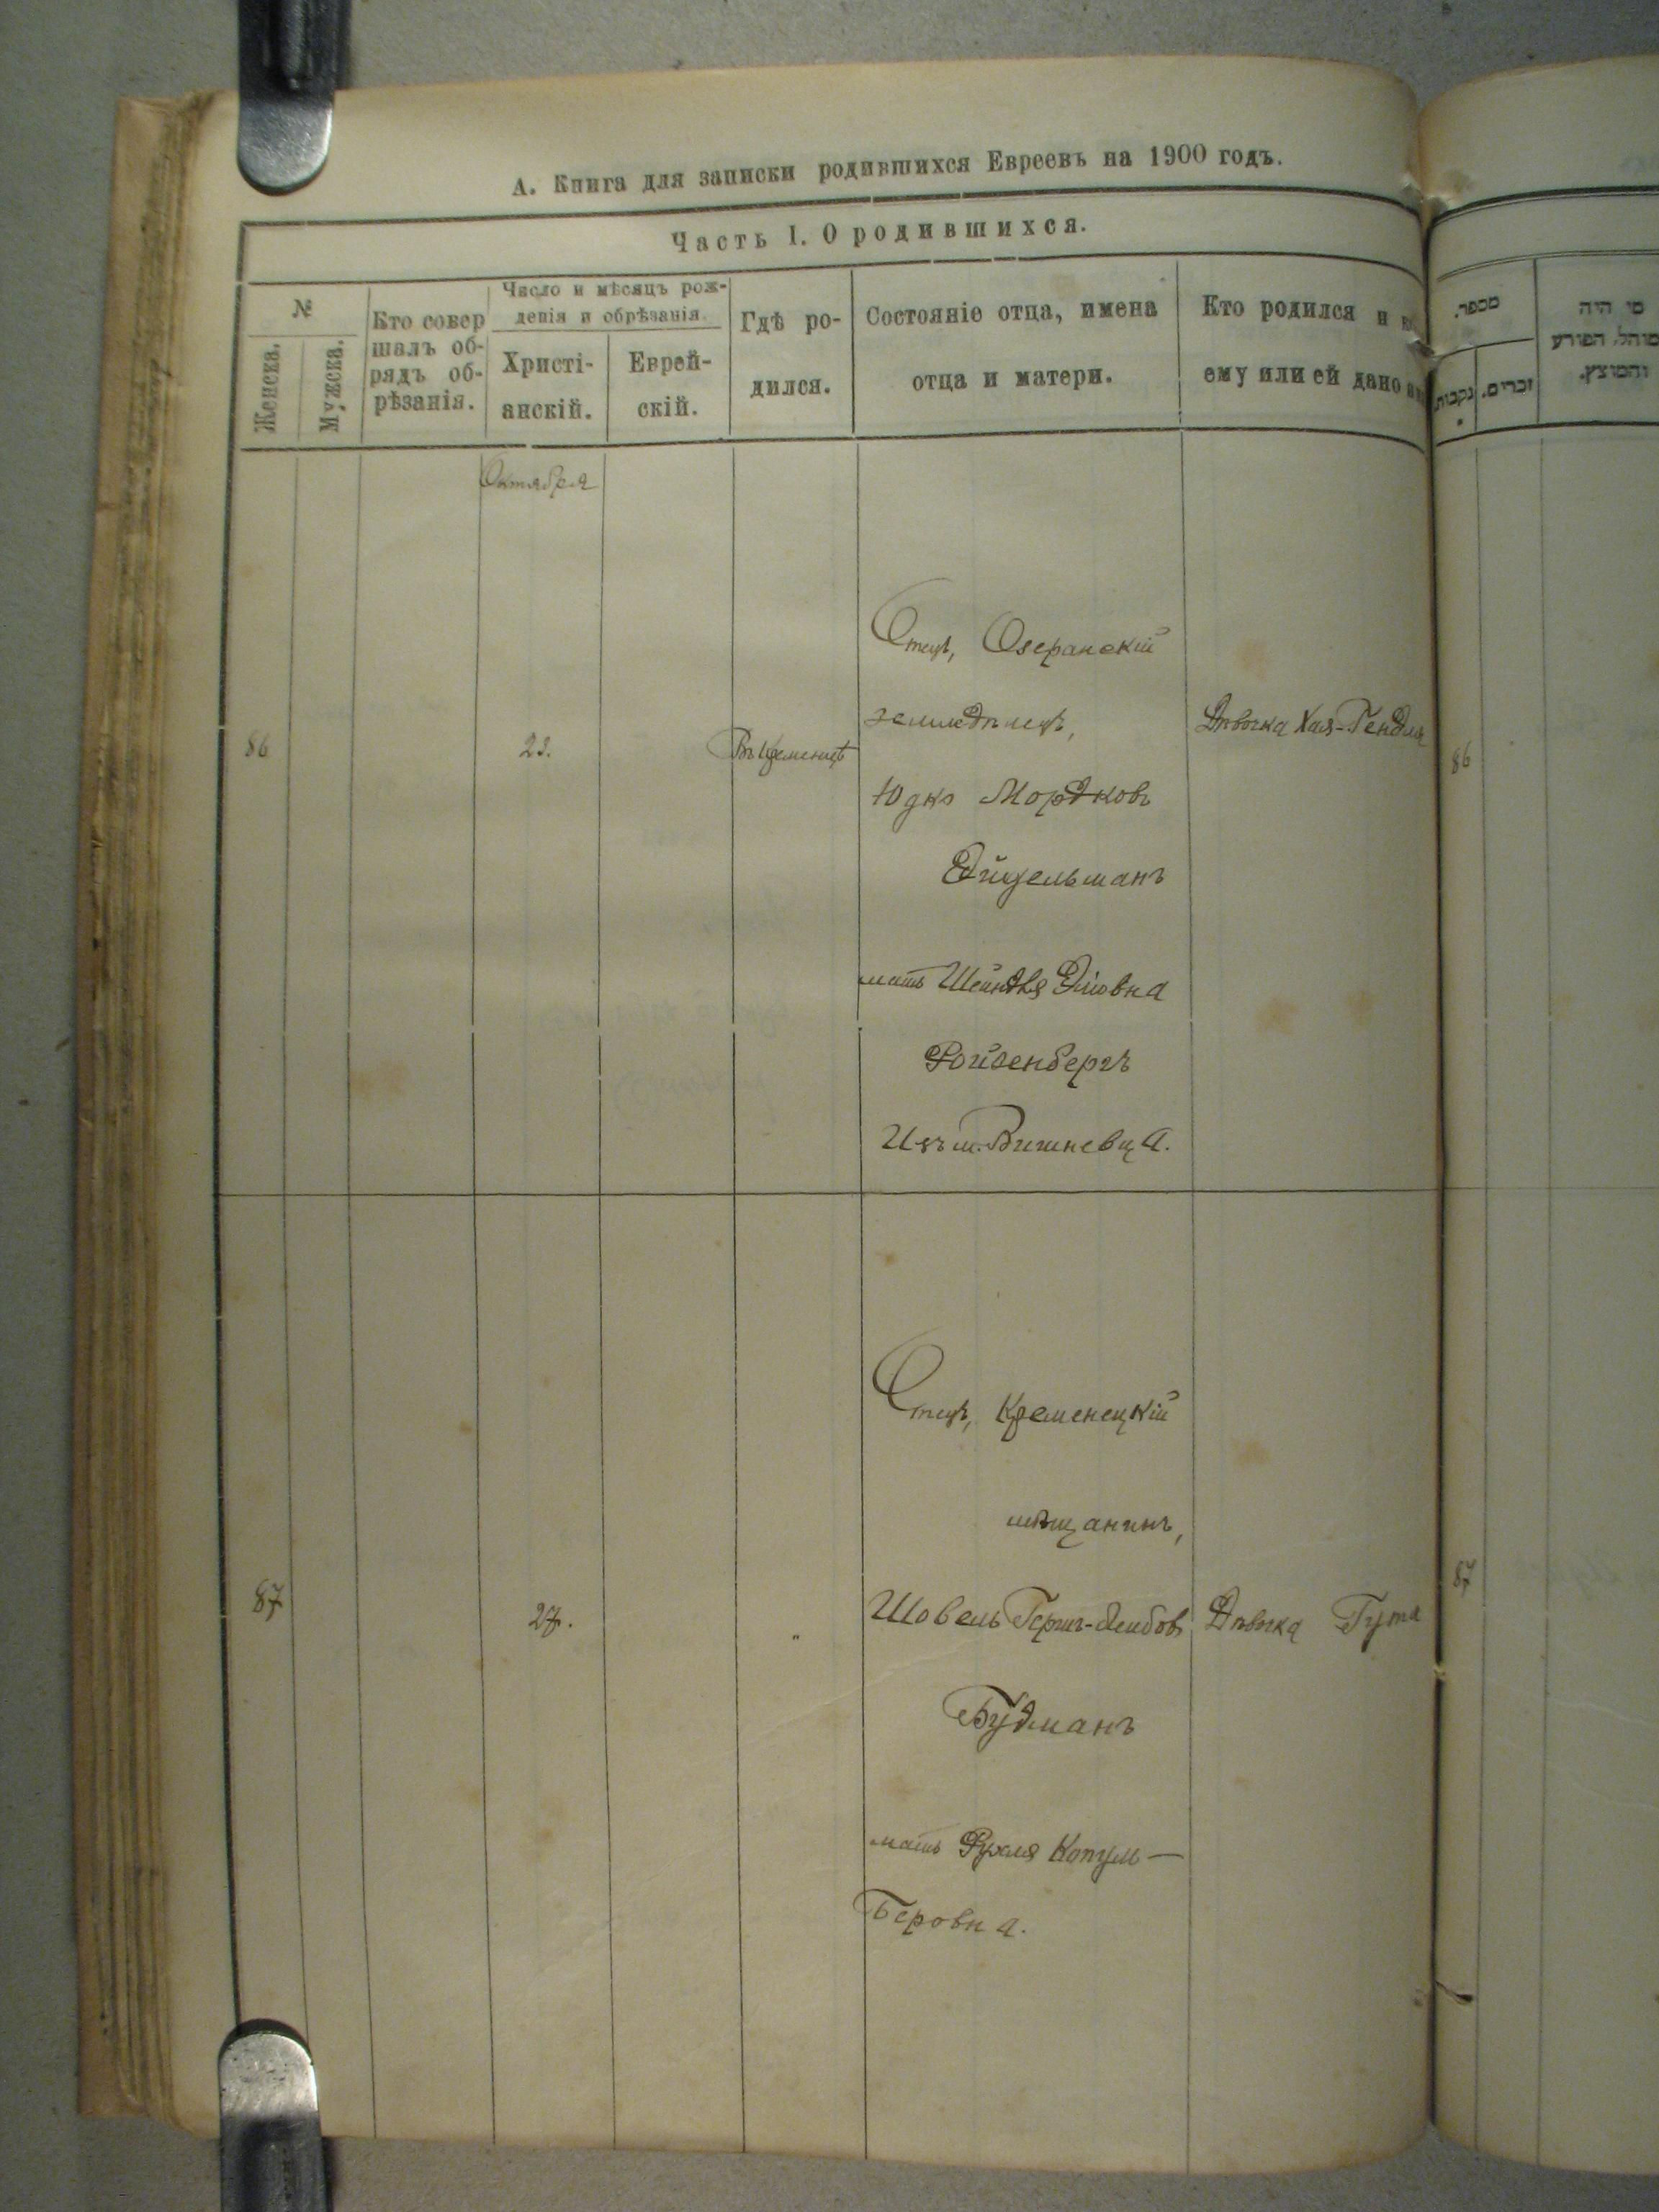 А. Книга для записки родившихся Евреевъ на 1900 годъ.
Часть I. О родившихся.
№
Женска.
Мужска.
Кто совер
шалъ об-
рядъ об-
рѣзанія.
Число и мѣсяцъ рож-
денія и обрѣзанія.
Христі-
анскій.
Еврей-
скій.
Гдѣ ро-
дился.
Состояніе отца, имена
отца и матери.
Кто родился и
ему или ей дано
מספר.
נקבות
זכרים.
מי היה
מוהל, הפורע
והמוצץ.
Октября
86
23.
Въ Кременцѣ
Отецъ, Озеранскій
земледѣлецъ,
Юдко Мордковъ
Эйдельманъ
мать Шейндля Эліовна
Ройзенбергъ
Изъ м. Вишневца.
Дѣвочка Хая-Гендля
86
87
27.
"
Отецъ, Кременецкій
мѣщанинъ,
Шовель Гершъ-Лейбовъ
Будманъ
мать Рухля Копуль-
Беровна.
Дѣвочка Гута
87